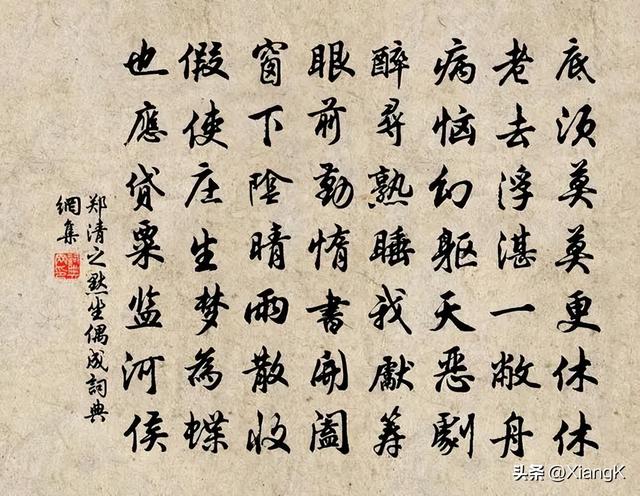 底须莫莫更休休
老去浮湛一敝舟
病恼幻躯天恶劇
醉尋熟睡我獻筹
眼前勤惰書開闔
窗下陰晴雨散收
假使庄生梦為蝶
也應贷粟监河侯
郑清之默坐偶成詞典
網集
头条 @XiangK